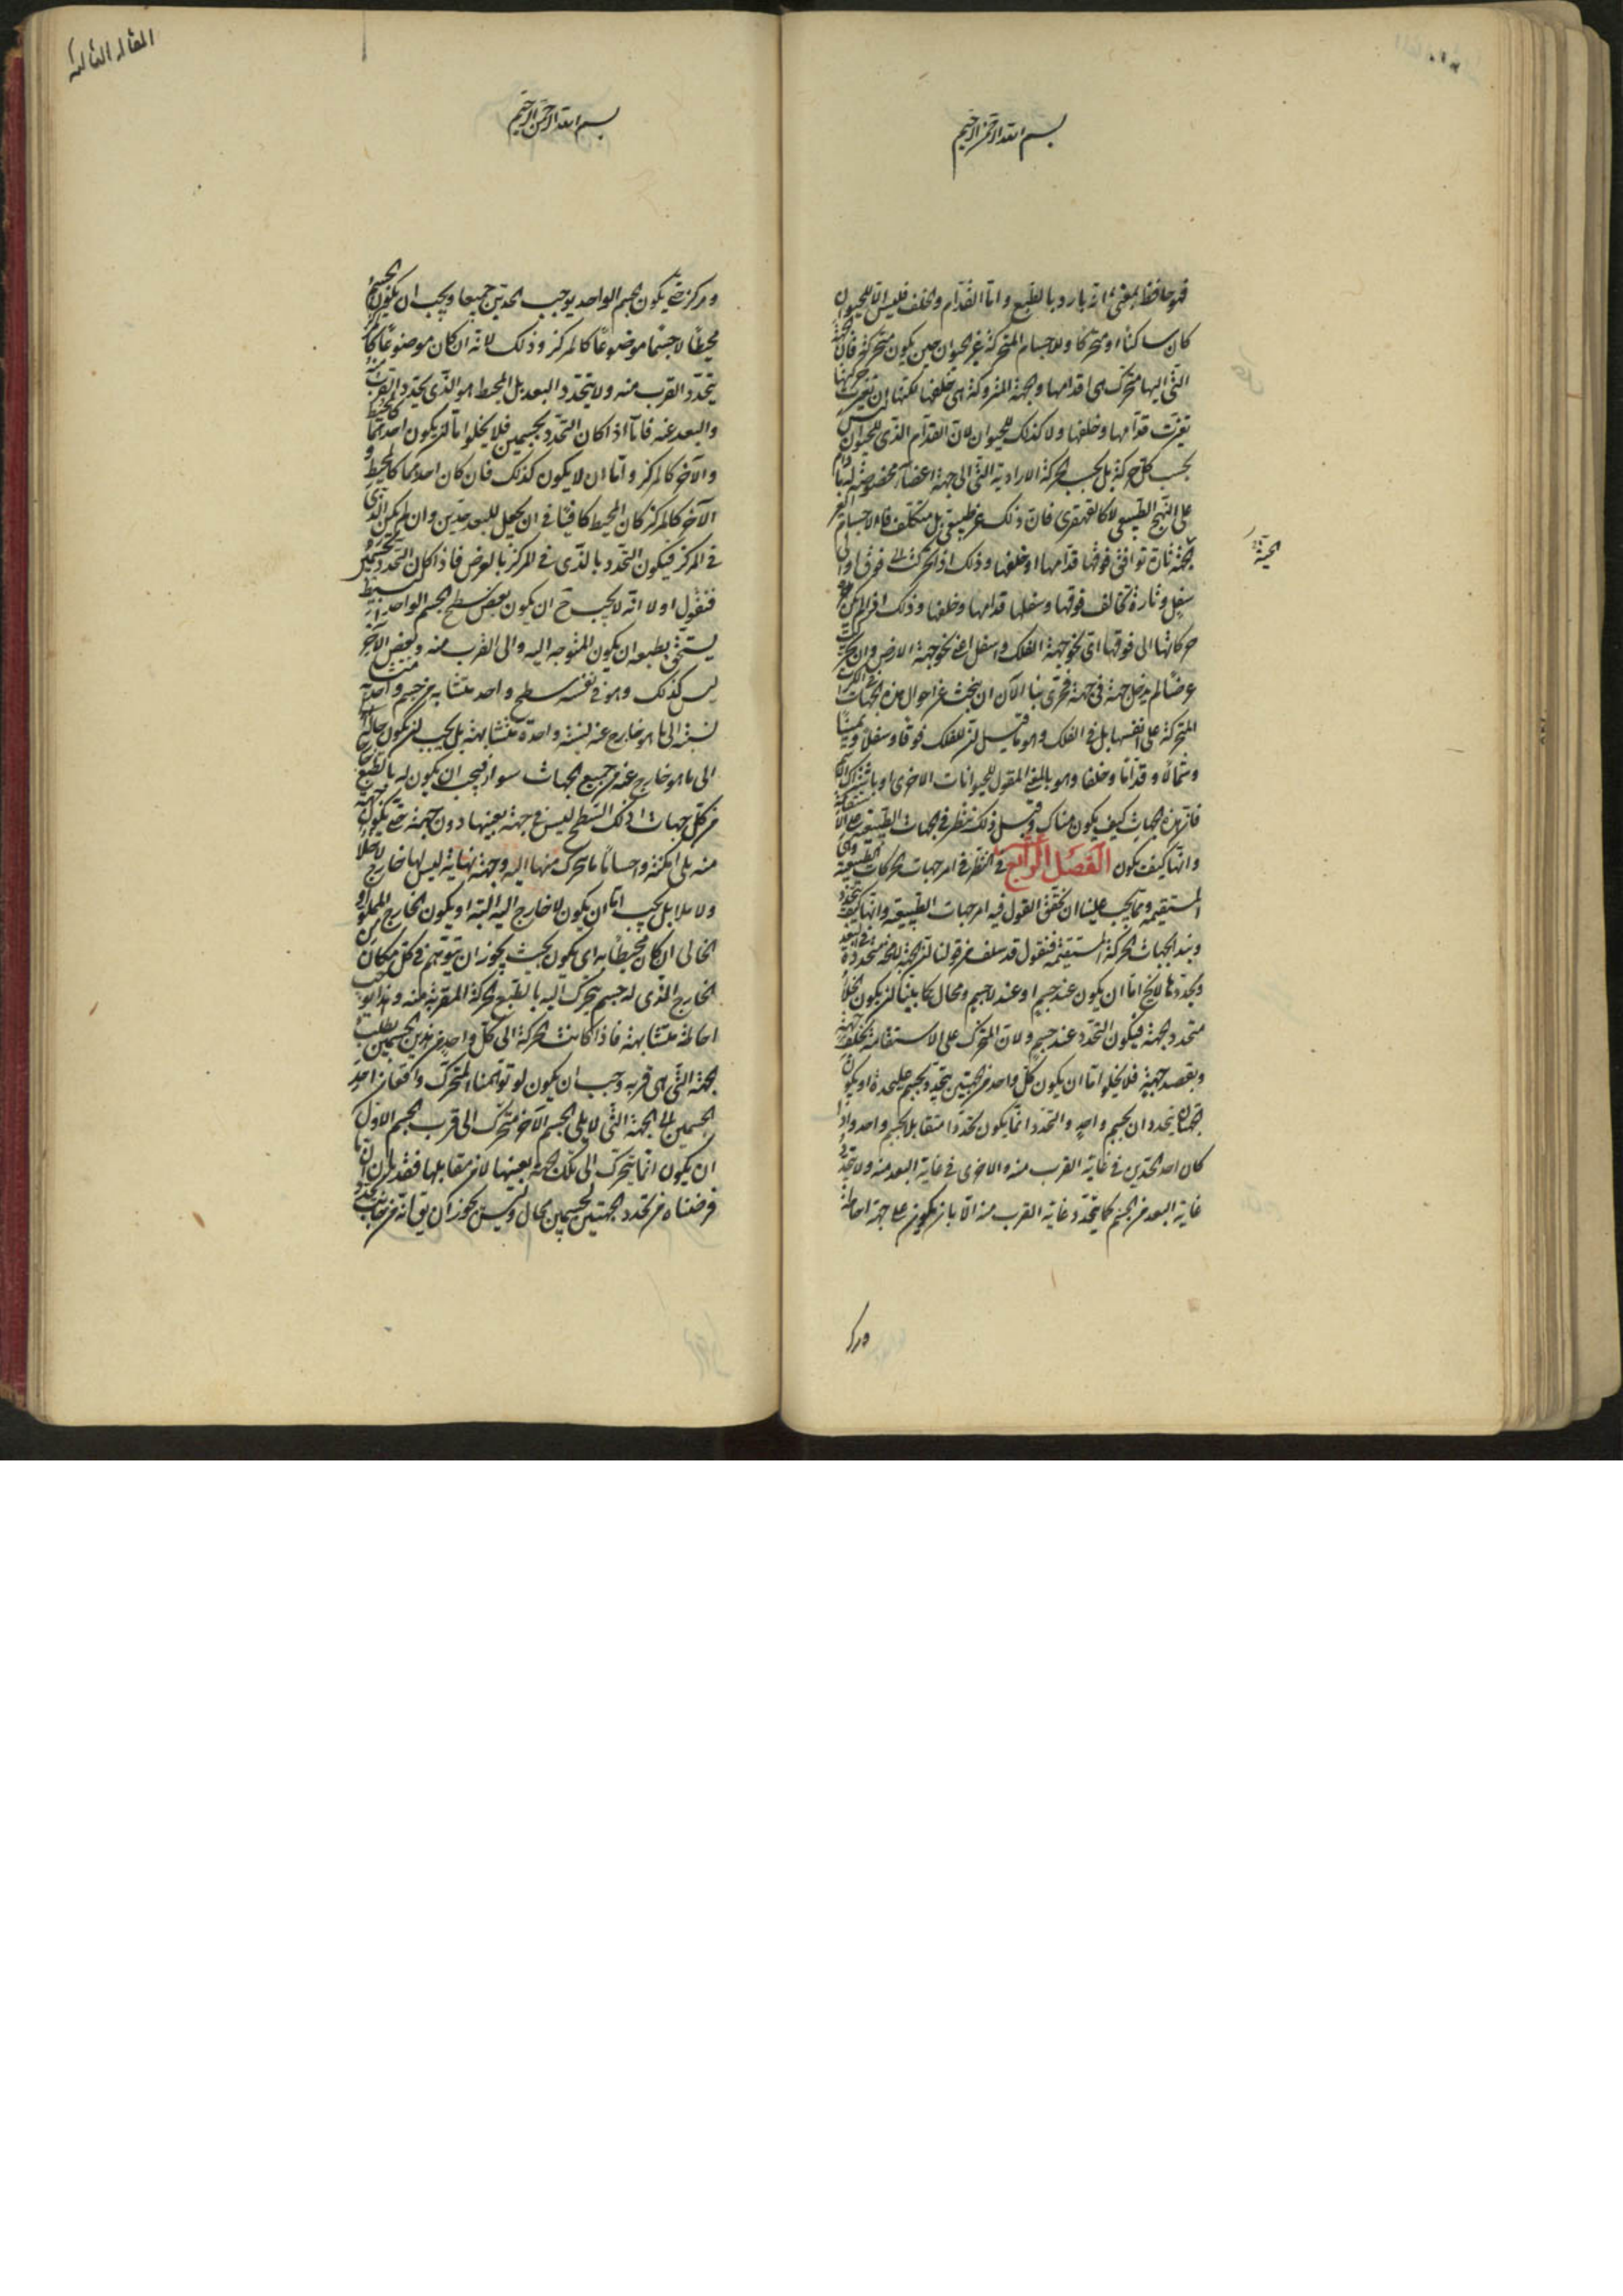 بسم الله الرحمن الرحيم
فهو حافظ لمعنى انه بارد بالطبع واما القدام والخلف فليس الا للحيوان
كان ساكنا او متحركا وللاجسام المتحركة غير الحيوان حين يكون متحركة فان الجهة
التى اليها متحرك هى قدامها والجهة المتروكة هى خلفها لكنها ان تغيرت حركتها
تغيرت قدامها وخلفها ولا كذلك للحيوان لان القدام الذى للحيوان ليس
بحسب كل حركة بل بحسب الحركة الارادية التى الى جهة اعضاء مخصوصة
على النهج الطبيعى لا كالقهقرى فان ذلك غير طبيعى بل متكلف فالاجسام الغير
الحية
الحية تارة توافق فوقها قدامها او خلفها وذلك اذا تحركت الى فوق او الى
سفل وتارة تخالف فوقها وسفلها قدامها وخلفها وذلك اذا لم يكن
حركاتها الى فوقها اى نحو جهة الفلك واسفل اعنى نحو جهة الارض وان تحركت
عرضا لم يدخل جهة فى جهة فحرى بنا الآن ان نبحث عن احوال هذه الجهات فى
المتحركة على انفسها بل فى الفلك وهو ما قيل ان للفلك فوقا وسفلا ويمينا
وشمالا وقداما وخلفا وهو بالمعنى المقول للحيوانات الاخرى او باشتراك الاسم
فان هذه الجهات كيف يكون هناك وقبل ذلك ننظر فى الجهات الطبيعية على الاستقامة
وانها كيف يكون الفصل الرابع فى النظر فى امر جهات الحركات الطبيعية وهى
المستقيمة ومما يجب علينا ان نحقق القول فيه امر جهات الطبيعية وانها كيف تتحدد
ونبدأ بجهات الحركة المستقيمة فنقول قد سلف من قولنا ان الجهة متحددة فى البعد
وتحددها لا يخ اما ان يكون عند جسم او عند لا جسم ومحال كما بينا ان يكون الخلأ
متحدد الجهة فيكون التحدد عند جسم ولان المتحرك على الاستقامة يخلف جهة
ويقصد جهة فلا يخلو اما ان يكون كل واحد من الجهتين يتحدد بجسم عليحدة او يكون
الجهتان يتحددان بجسم واحد والتحدد انما يكون تحددا متقابلا بجسم واحد واذا
كان احد الحدين فى غاية القرب منه والاخرى فى غاية البعد منه ولا يتحدد
غاية البعد من الجسم كما يتحدد غاية القرب منه الا بان يكون على جهة احاطة
ومركز
المقالة الثالثة
بسم الله الرحمن الرحيم
ومركز حتى يكون الجسم الواحد يوجب الحدين جميعا ويجب ان يكون الجسم
محيطا لا جسما موضوعا كالمركز وذلك لانه ان كان موضوعا كالمركز
يتحدد القرب منه ولا يتحدد البعد بل المحيط هو الذى يحدد القرب منه
والبعد عنه فاما اذا كان التحدد بجسمين فلا يخلو اما ان يكون احدهما كالمحيط
والآخر كالمركز واما ان لا يكون كذلك فان كان احدهما كالمحيط و
الآخر كالمركز كان المحيط كافيا فى ان يجعل للبعد حدين وان لم يكن الذى
فى المركز فيكون التحدد بالذى فى المركز بالعرض فاذا كان التحدد بجسمين
فنقول اولا انه لا يجب ح ان يكون بعض سطح الجسم الواحد البسيط
يستحق بطبعه ان يكون المتوجه اليه والى القرب منه وبعض الآخر
ليس كذلك وهو فى نفسه سطح واحد متشابه من جسم واحد متشابه
نسبته الى ما هو خارج عنه نسبة واحدة متشابهة بل يجب ان يكون حاله
الى ما هو خارج عنه من جميع الجهات سواء فيجب ان يكون له بالطبع خارج
من كل جهات اذ ذلك السطح ليس فى جهة بعينها دون جهة حتى يكون جهة
منه يلى امكنة واحسانا ما يتحرك منها اليه وجهة نهاية ليس لها خارج لا خلأ
ولا ملأ بل يجب اما ان يكون لا خارج اليه البتة او يكون الخارج المملو او
الخالى ان كان محيطا به اى يكون بحيث يجوز ان يتوهم فى كل مكان من
الخارج الذى له جسم يتحرك اليه بالطبع الحركة المقربة منه وهذا يوجب
احاطة متشابهة فاذا كانت الحركة الى كل واحد من هذين الجسمين يطلب
الجهة التى هى قربه وجب ان يكون لو توهمنا المتحرك واقعا من احد
الجسمين الى الجهة التى لا يلى الجسم الآخر متحرك الى قرب الجسم الاول
ان يكون انما يتحرك الى تلك الجهة بعينها لا من مقابلها فقد لزم ان ما
فرضناه من تحدد الجهتين بالجسمين محال وليس يجوز ان يق انه من جانب